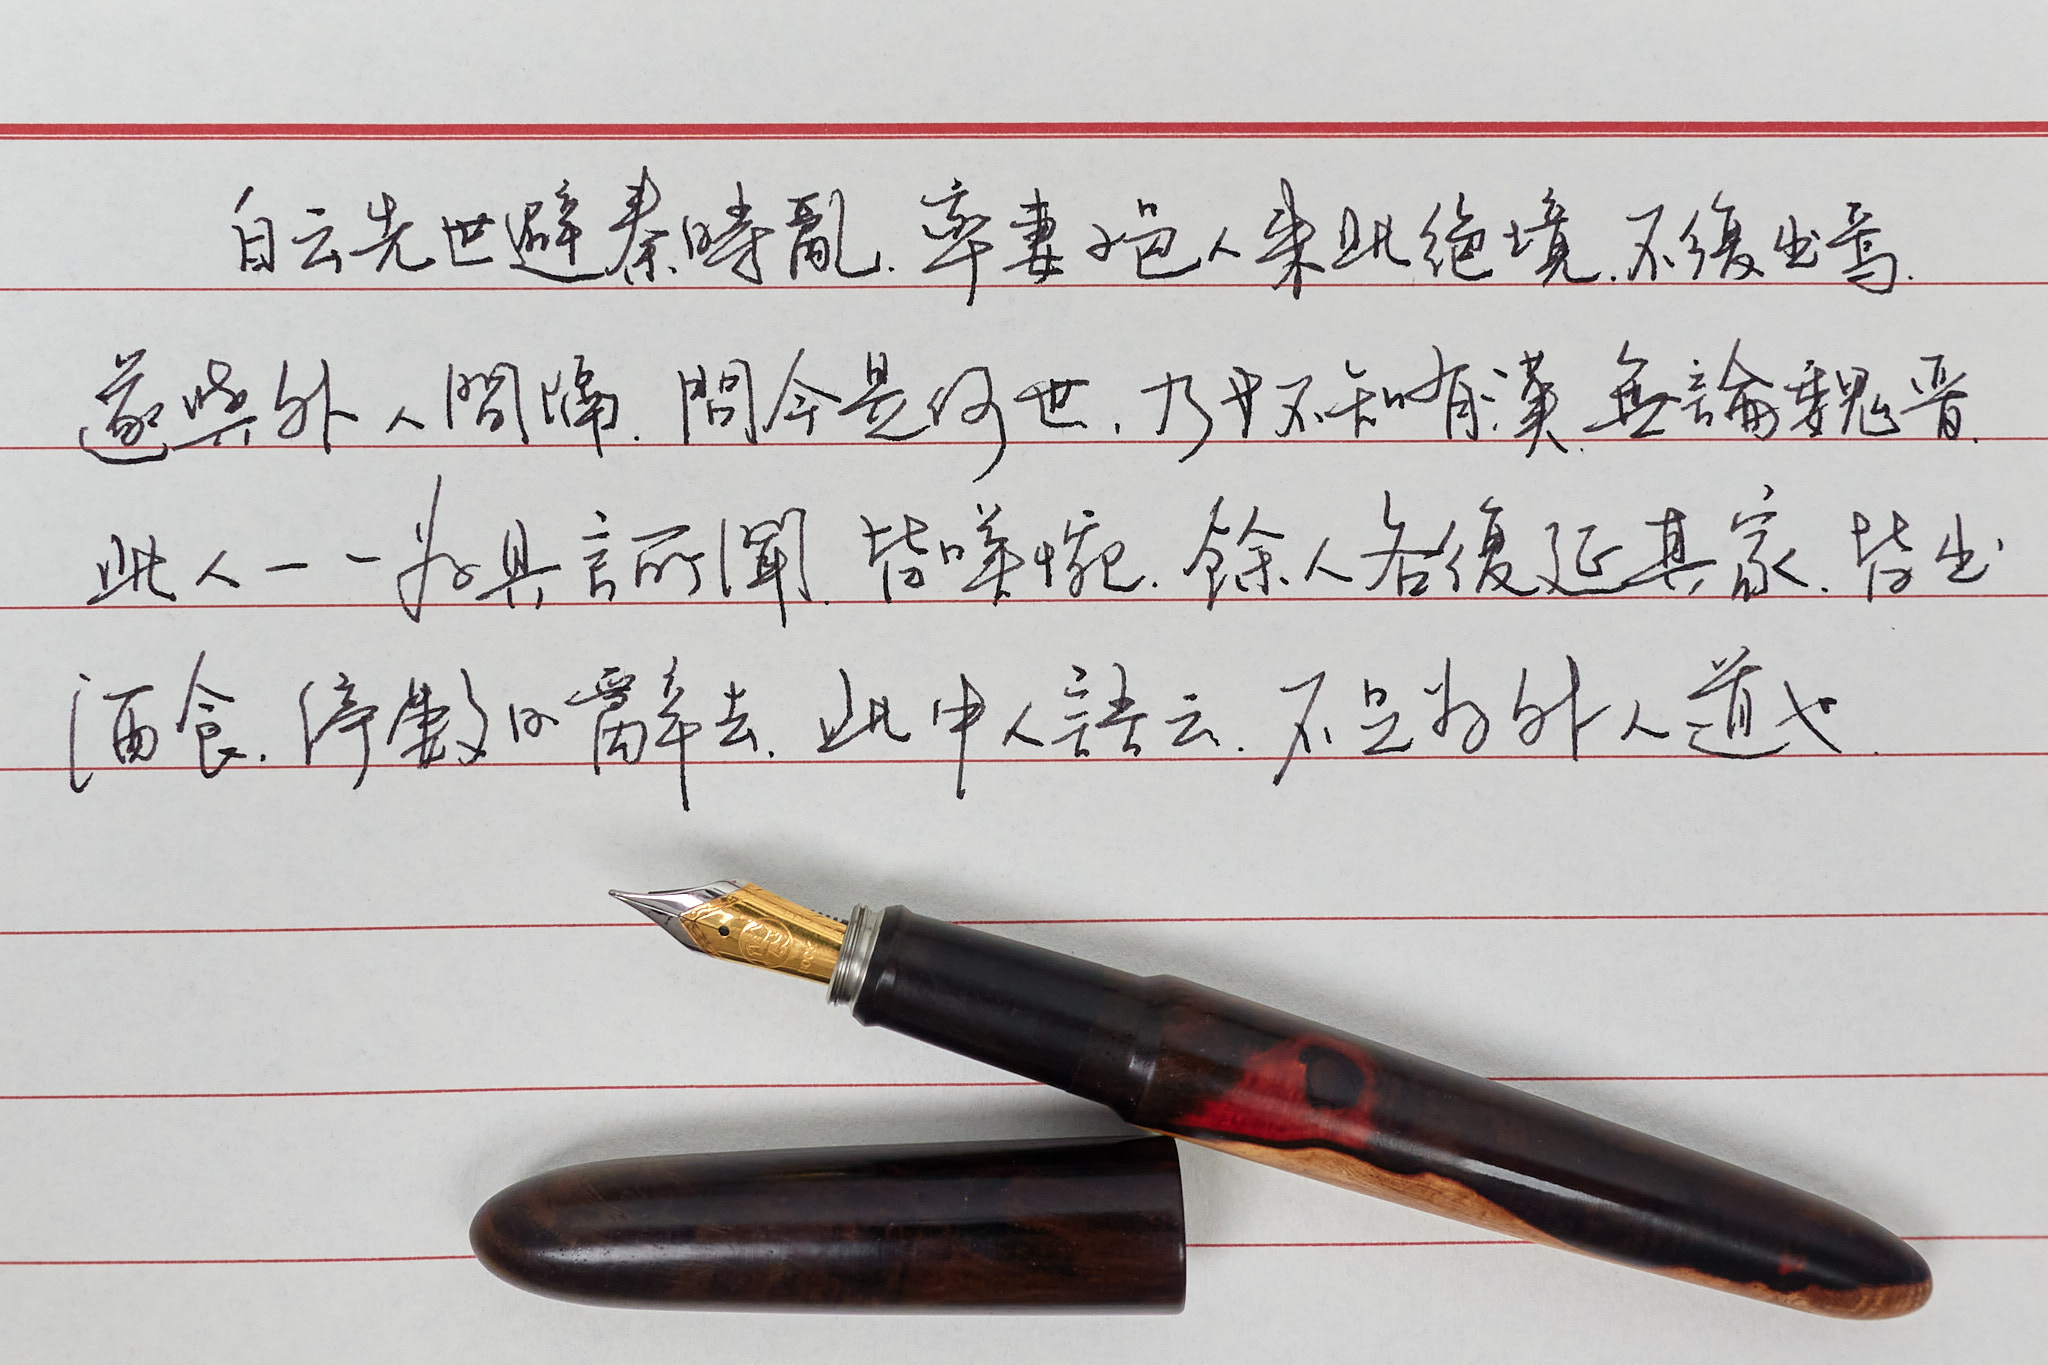 自云先世避秦時亂.率妻子邑人來此絕境.不復出焉.
遂與外人間隔.問今是何世.乃不知有漢.無論魏晉.
此人一一為具言所聞.皆嘆惋.餘人各復延其家.皆出
酒食.停數日辭去.此中人語云.不足為外人道也.